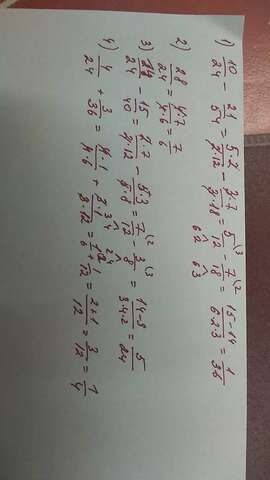 1) 10/24 - 21/54 = 5·2/2·12 - 3·7/3·18 = 5/12 - 7/18 = 15-14/6·2·3 = 1/36
2) 28/24 = 4·7/4·6 = 7/6
3) 14/24 - 15/40 = 2·7/2·12 - 5·3/5·8 = 7/12 - 3/8 = 14-9/3·4·2 = 5/24
4) 4/24 + 3/36 = 4·1/4·6 + 3·1/3·12 = 1/6 + 1/12 = 2+1/12 = 3/12 = 1/4